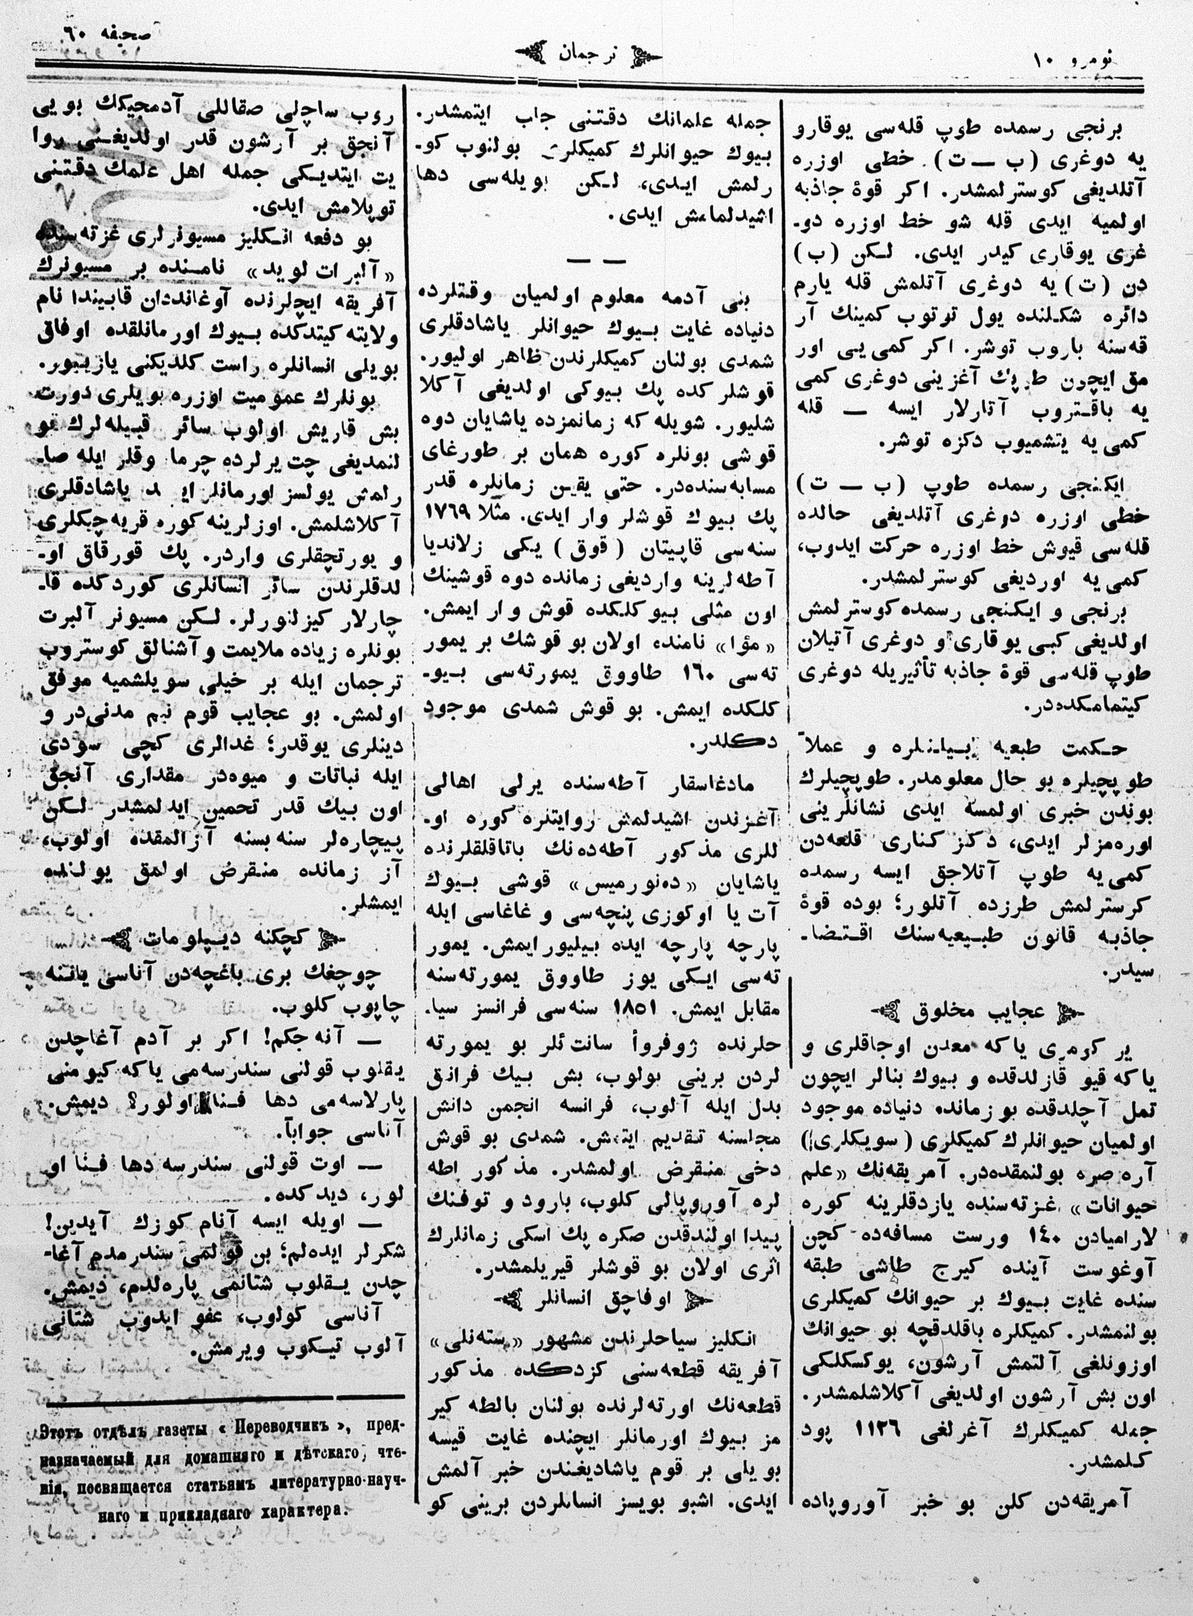 صحيفه ٦٠
ترجمان
نومرو ١٠
برنجی رسمده طوپ قله‌سی يوقارو
يه دوغری (ب — ت) خطی اوزره
آتلديغی كوسترلمشدر. اكر قوۀ جاذبه
اولميه ايدی قله شو خط اوزره دو-
غری يوقاری كيدر ايدی. لكن (ب)
دن (ت) يه دوغری آتلمش قله يارم
دائره شكلنده يول توتوب كمينك آر
قه‌سنه باروب توشر. اكر كمی‌يی اور
مق ايچون طوپك آغزينی دوغری كمی
يه باقتروب آتارلار ايسه — قله
كمی‌يه يتشميوب دكزه توشر.
ايكنجی رسمده طوپ (ب — ت)
خطی اوزره دوغری آتلديغی حالده
قله‌سی قيوش خط اوزره حركت ايدوب،
كمی‌يه اورديغی كوسترلمشدر.
برنجی و ايكنجی رسمده كوسترلمش
اولديغی كبی يوقاری و دوغری آتيلان
طوپ قله‌سی قوۀ جاذبه تأثيريله دوغری
كيتمامكده‌در.
حكمت طبعيه بيلانلره و عملاً
طوپچيلره بو حال معلومدر. طوپچيلرك
بوندن خبری اولمسه ايدی نشانلرينی
اوره‌مزلر ايدی، دكز كناری قلعه‌دن
كمی‌يه طوپ آتلاجق ايسه رسمده
كرسترلمش طرزده آتلور؛ بوده قوۀ
جاذبه قانون طبيعيه‌سنك اقتضا-
سيدر.
عجايب مخلوق
ير كومری ياكه معدن اوجاقلری و
ياكه قيو قازلدقده و بيوك بنالر ايچون
تمل آچلدقده بو زمانده دنياده موجود
اولميان حيوانلرك كميكلری (سويكلری)
آره صره بولنمقده‌در. آمريقه‌نك «علم
حيوانات» غزته‌سنده يازدقلرينه كوره
لاراميادن ١٤٠ ورست مسافه‌ده كچن
آوغوست آينده كيرج طاشی طبقه
سنده غايت بيوك بر حيوانك كميكلری
بولنمشدر. كميكلره باقلدقچه بو حيوانك
اوزونلغی آلتمش آرشون، يوكسكلكی
اون بش آرشون اولديغی آكلاشلمشدر.
جمله كميكلرك آغرلغی ١١٢٦ پود
كلمشدر.
آمريقه‌دن كلن بو خبر آوروپاده
جمله علمانك دقتنی جلب ايتمشدر.
بيوك حيوانلرك كميكلری بولنوب كو-
رلمش ايدی، لكن بويله‌سی دها
اشيدلمامش ايدی.
— —
بنی آدمه معلوم اولميان وقتلرده
دنياده غايت بيوك حيوانلر ياشادقلری
شمدی بولنان كميكلرندن ظاهر اوليور.
قوشلر كده پك بيوكی اولديغی آكلا
شليور. شويله كه زمانمزده ياشايان دوه
قوشی بونلره كوره همان بر طورغای
مسابه‌سنده‌در. حتی يقين زمانلره قدر
پك بيوك قوشلر وار ايدی. مثلا ١٧٦٩
سنه‌سی قاپيتان (قوق) يكی زلانديا
آطه‌لرينه وارديغی زمانده دوه قوشينك
اون مثلی بيوكلكده قوش وار ايمش.
«مؤا» نامنده اولان بو قوشك بر يمور
ته‌سی ١٦٠ طاووق يمورته‌سی بيو-
كلكده ايمش. بو قوش شمدی موجود
دكلدر.
مادغاسقار آطه‌سنده يرلی اهالی
آغزندن اشيدلمش روايتلره كوره او-
للری مذكور آطه‌ده‌نك باتاقلقلرنده
ياشايان «ده‌نورميس» قوشی بيوك
آت يا اوكوزی پنچه‌سی و غاغاسی ايله
پارچه پارچه ايده بيليور ايمش. يمور
ته‌سی ايكی يوز طاووق يمورته‌سنه
مقابل ايمش. ١٨٥١ سنه‌سی فرانسز سيا-
حلرنده ژوفروأ سانت‌ئلر بو يمورته
لردن برينی بولوب، بش بيك فرانق
بدل ايله آلوب، فرانسه انجمن دانش
مجلسنه تقديم ايتمش. شمدی بو قوش
دخی منقرض اولمشدر. مذكور اطه
لره آوروپالی كلوب، بارود و توفنك
پيدا اولندقدن صكره پك اسكی زمانلرك
اثری اولان بو قوشلر قيريلمشدر.
اوفاجق انسانلر
انكليز سياحلرندن مشهور «سته‌نلی»
آفريقه قطعه‌سنی كزدكده مذكور
قطعه‌نك اورته‌لرنده بولنان بالطه كير
مز بيوك اورمانلر ايچنده غايت قيسه
بويلی بر قوم ياشاديغندن خبر آلمش
ايدی. اشبو بويسز انسانلردن برينی كو
روب ساچلی صقاللی آدمجيكك بويی
آنجق بر آرشون قدر اولديغنی روا
يت ايتديكی جمله اهل علمك دقتنی
توپلامش ايدی.
بو دفعه انكليز مسيونرلری غزته‌سنده
«آلبرات لويد» نامنده بر مسيونرك
آفريقه ايچلرنده آوغانددان قابيندا نام
ولايته كيتدكده بيوك اورمانلقده اوفاق
بويلی انسانلره راست كلديكنی يازييور.
بونلرك عموميت اوزره بويلری دورت
بش قاريش اولوب سائر قبيله‌لرك قو
لنمديغی چت يرلرده چرما وقلر ايله صا-
رلمش يولسز اورمانلر ايچنده ياشادقلری
آكلاشلمش. اوزلرينه كوره قريه‌چكلری
و يورتچقلری واردر. پك قورقاق او-
لدقلرندن سائر انسانلری كوردكده قا-
چارلار كيزلنورلر. لكن مسيونر آلبرت
بونلره زياده ملايمت و آشنالق كوستروب
ترجمان ايله بر خيلی سويلشميه موفق
اولمش. بو عجايب قوم نيم مدنی‌در و
دينلری يوقدر؛ غدالری كچی سودی
ايله نباتات و ميوه‌در مقداری آنجق
اون بيك قدر تحمين ايدلمشدر لكن
بيچاره‌لر سنه بسنه آزالمقده اولوب،
آز زمانده منقرض اولمق يولنده
ايمشلر.
كچكنه ديپلومات
چوچغك بری باغچه‌دن آناسی يانينه
چاپوب كلوب.
— آنه جكم! اكر بر آدم آغاچدن
يقلوب قولنی سندرسه‌می ياكه كيومنی
پارلاسه‌می دها فنا اولور؟ ديمش.
آناسی جواباً.
— اوت قولنی سندرسه دها فنا او
لور، ديدكده.
— اويله ايسه آنام كوزك آيدين!
شكرلر ايده‌لم؛ بن قولمی سندرمدم آغا-
چدن يقلوب شتانمی پاره‌لدم، ديمش.
آناسی كولوب، عفو ايدوب شتانی
آلوب تيكوب ويرمش.
Этотъ отдѣлъ газеты «Переводчикъ», пред-
назначаемый для домашняго и дѣтскаго, чте-
нія, посвящается статьямъ литературно-науч-
наго и прикладнаго характера.